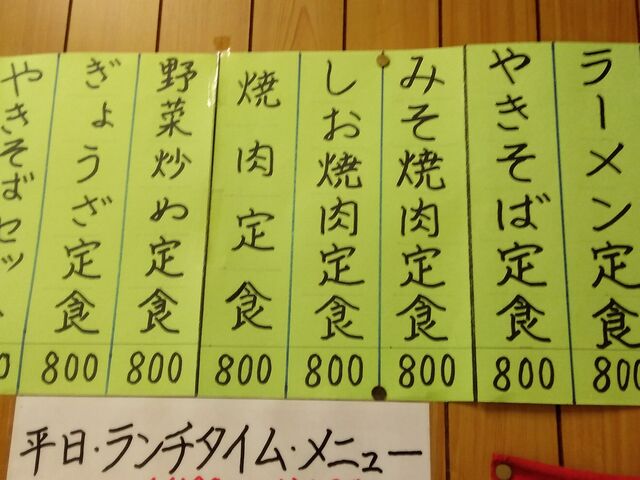 ラーメン定食
800
やきそば定食
800
みそ焼肉定食
800
しお焼肉定食
800
焼肉定食
800
野菜炒め定食
800
ぎょうざ定食
800
やきそばセッ
平日・ランチタイム・メニュー